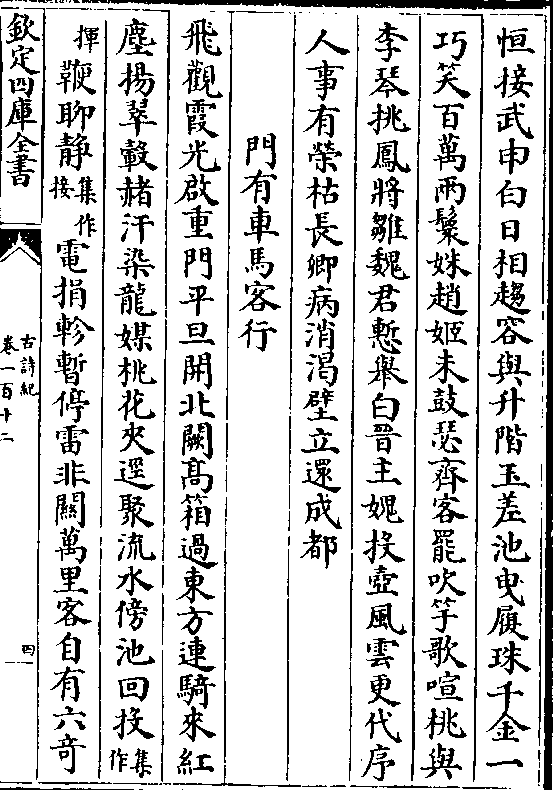 恒接武申白日相趨容與升階玉差池曳履珠千金一
巧笑百萬兩鬟姝趙姬未鼓瑟齊客罷吹竽歌喧桃與
李琴挑鳳將雛魏君慙舉白晉主媿投壺風雲更代序
人事有榮枯長卿病消渴壁立還成都
門有車馬客行
飛觀霞光啟重門平旦開北闕髙箱過東方連騎來紅
塵揚翠轂赭汗染龍媒桃花夾逕聚流水傍池回投集作
揮鞭聊静集作接電捐軫暫停雷非關萬里客自有六竒
欽定四庫全書
古詩紀
卷一百十二
四